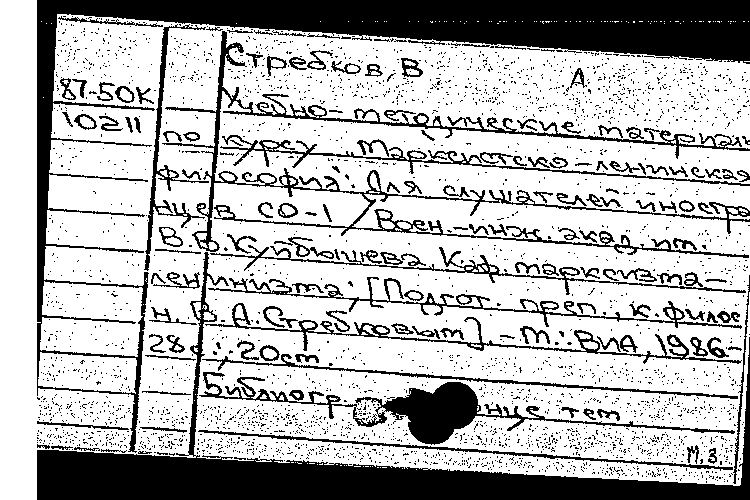 Стребков, В А.
87-50К Учебно-методические материалы
10211 по курсу „Марксистско-ленинская
философия": Для слушателей иностра
нцев СО-1 / Воен.-инж. акад. им.
В.В.Куйбышева. Каф. марксизма-
ленинизма; [Подгот. преп., к. филос
н. В.А.Стребковым]. - М.: ВИА, 1986-
28с.; 20см.
Библиогр. в конце тем.
М.З.